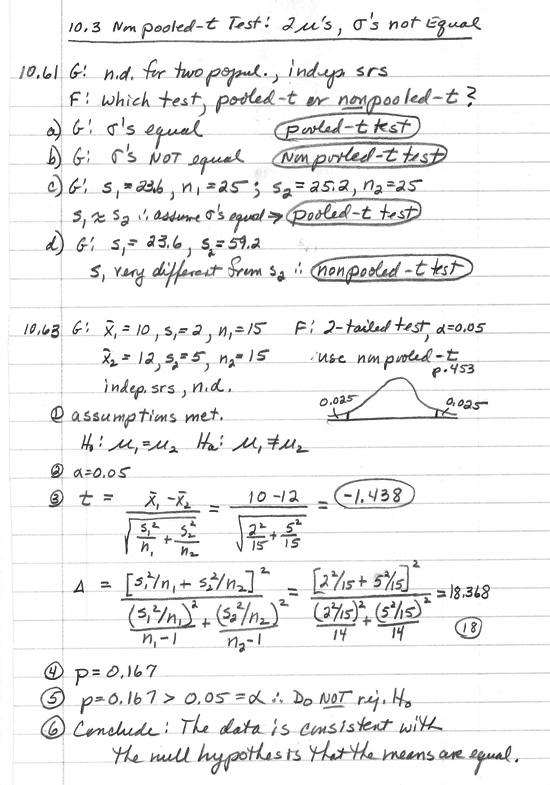 10.3 Non pooled-t Test: 2 μ's, σ's not Equal
10.61 G: n.d. for two popul., indep srs
F: which test, pooled-t or nonpooled-t?
a) G: σ's equal pooled-t test
b) G: σ's NOT equal Non pooled-t test
c) G: s₁=23.6, n₁=25; s₂=25.2, n₂=25
s₁≈s₂ ∴ assume σ's equal ⇒ pooled-t test
d) G: s₁=23.6, s₂=59.2
s₁ very different from s₂ ∴ nonpooled-t test
10.63 G: x̄₁=10, s₁=2, n₁=15 F: 2-tailed test, α=0.05
x̄₂=12, s₂=5, n₂=15 ∴ use nonpooled-t
p.453
indep. srs, n.d.
0.025 0.025
① assumptions met.
H₀: μ₁=μ₂ Ha: μ₁≠μ₂
② α=0.05
③ t = (x̄₁-x̄₂)/√(s₁²/n₁ + s₂²/n₂) = (10-12)/√(2²/15 + 5²/15) = -1.438
Δ = [s₁²/n₁ + s₂²/n₂]² / ((s₁²/n₁)²/(n₁-1) + (s₂²/n₂)²/(n₂-1)) = [2²/15 + 5²/15]² / ((2²/15)²/14 + (5²/15)²/14) = 18.368
18
④ p=0.167
⑤ p=0.167 > 0.05=α ∴ Do NOT rej. H₀
⑥ Conclude: The data is consistent with
the null hypothesis that the means are equal.